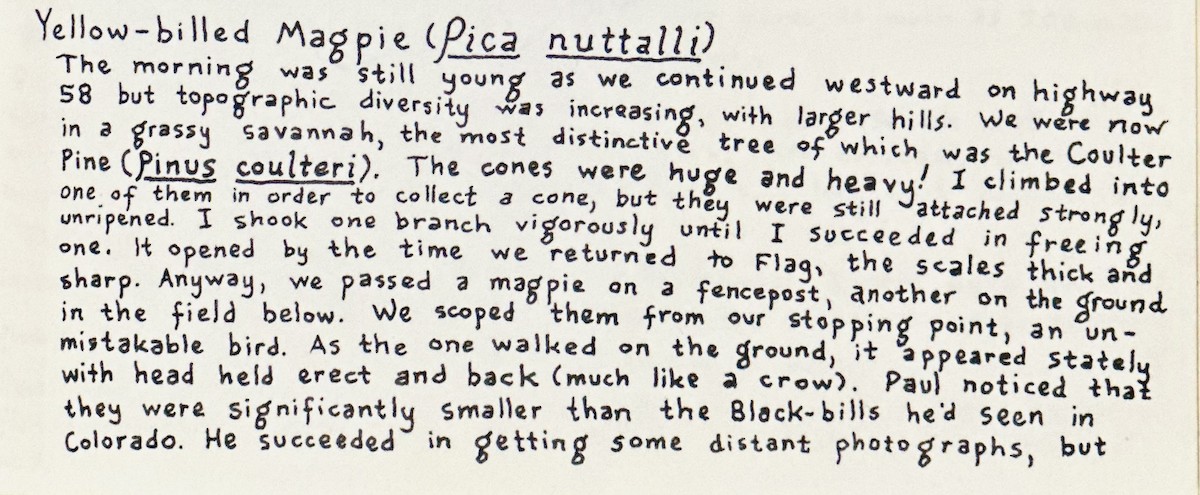 Yellow-billed Magpie (Pica nuttalli)
The morning was still young as we continued westward on highway
58 but topographic diversity was increasing, with larger hills. We were now
in a grassy savannah, the most distinctive tree of which was the Coulter
Pine (Pinus coulteri). The cones were huge and heavy! I climbed into
one of them in order to collect a cone, but they were still attached strongly,
unripened. I shook one branch vigorously until I succeeded in freeing
one. It opened by the time we returned to Flag, the scales thick and
sharp. Anyway, we passed a magpie on a fencepost, another on the ground
in the field below. We scoped them from our stopping point, an un-
mistakable bird. As the one walked on the ground, it appeared stately
with head held erect and back (much like a crow). Paul noticed that
they were significantly smaller than the Black-bills he'd seen in
Colorado. He succeeded in getting some distant photographs, but